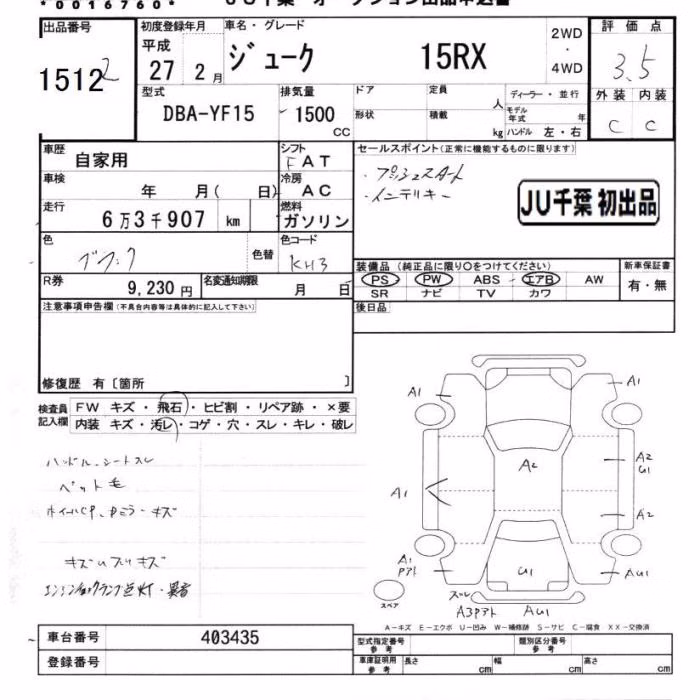 *0016760*
JU千葉 オークション出品申込書
出品番号 初度登録年月 車名・グレード 2WD・4WD 評価点
1512 2 平成 27 2月 ジューク 15RX 3.5
型式 排気量 ドア 定員 人 ディーラー・並行 外装 内装
DBA-YF15 1500 CC 形状 積載 kg モデル年式 年 ハンドル 左・右 C C
車歴 自家用 シフト FAT セールスポイント(正常に機能するものに限ります)
車検 年 月( 日) 冷房 AC ・プッシュスタート
走行 6万3千907 km 燃料 ガソリン ・インテリキー
JU千葉 初出品
色 ブラック 色替 色コード KH3
装備品(純正品に限り○をつけてください) 新車保証書
R券 9,230円 名変通知期限 月 日 PS PW ABS エアB AW 有・無
SR ナビ TV カワ
注意事項申告欄(不具合内容等は具体的に記入して下さい) 後日品
修復歴 有〔箇所 〕
検査員記入欄 FW キズ・飛石・ヒビ割・リペア跡・×要
内装 キズ・汚レ・コゲ・穴・スレ・キレ・破レ
ハンドル、シートスレ
ペット毛
ホイールCP、Dミラーキズ
キズUスリキズ
エンジンチェックランプ点灯・異音
A1 A1
A2 A2 U1
A1 A2
A1 Pアト U1 AU1
スペア スレ A3Pアト AU1
A－キズ E－エクボ U－凹み W－補修跡 S－サビ C－腐食 XX－交換済
車台番号 403435 型式指定番号 参考 類別区分番号 参考
登録番号 車庫証明用 参考 長さ cm 幅 cm 高さ cm